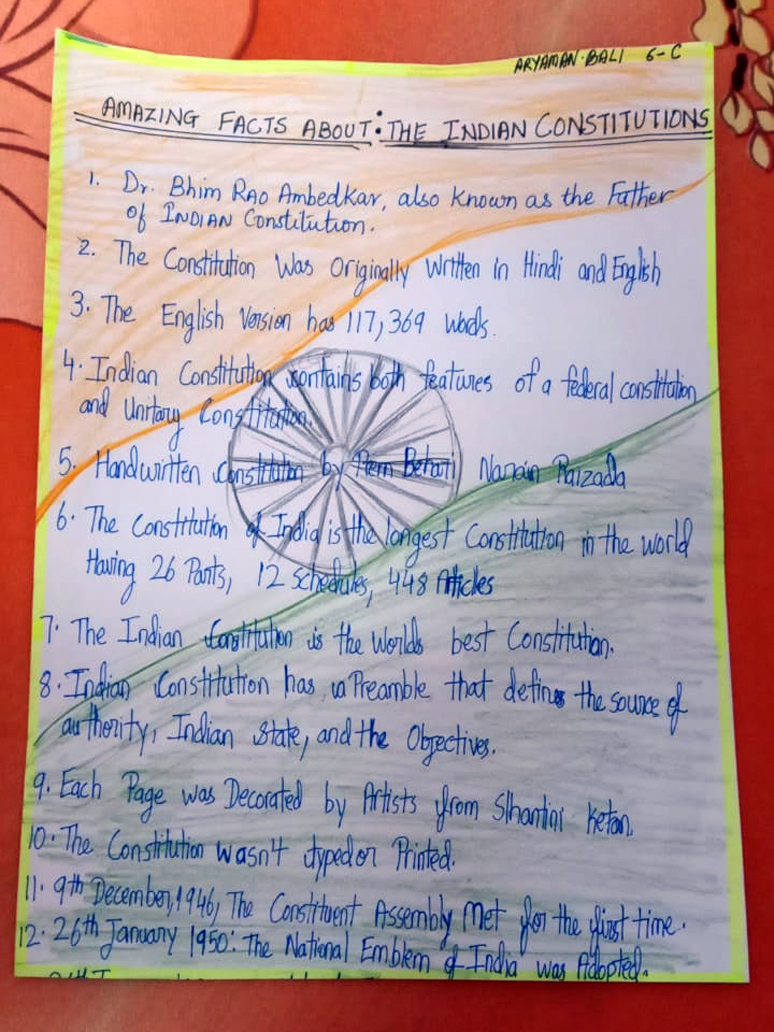 ARYAMAN·BALI 6-C
AMAZING FACTS ABOUT: THE INDIAN CONSTITUTIONS
1. Dr. Bhim Rao Ambedkar, also known as the Father
of INDIAN Constitution.
2. The Constitution Was Originally Written in Hindi and English
3. The English Version has 117,369 Words.
4. Indian Constitution contains both features of a federal constitution
and Unitary Constitution.
5. Handwritten Constitution by Prem Behari Narain Raizada
6. The Constitution of India is the longest Constitution in the world
Having 26 Parts, 12 Schedules, 448 Articles
7. The Indian Constitution is the Worlds best Constitution.
8. Indian Constitution has a Preamble that defines the source of
authority, Indian State, and the Objectives.
9. Each Page was Decorated by Artists from Shantini ketan.
10. The Constitution wasn't typed or Printed.
11. 9th December, 1946, The Constituent Assembly Met for the first time.
12. 26th January 1950: The National Emblem of India was Adopted.